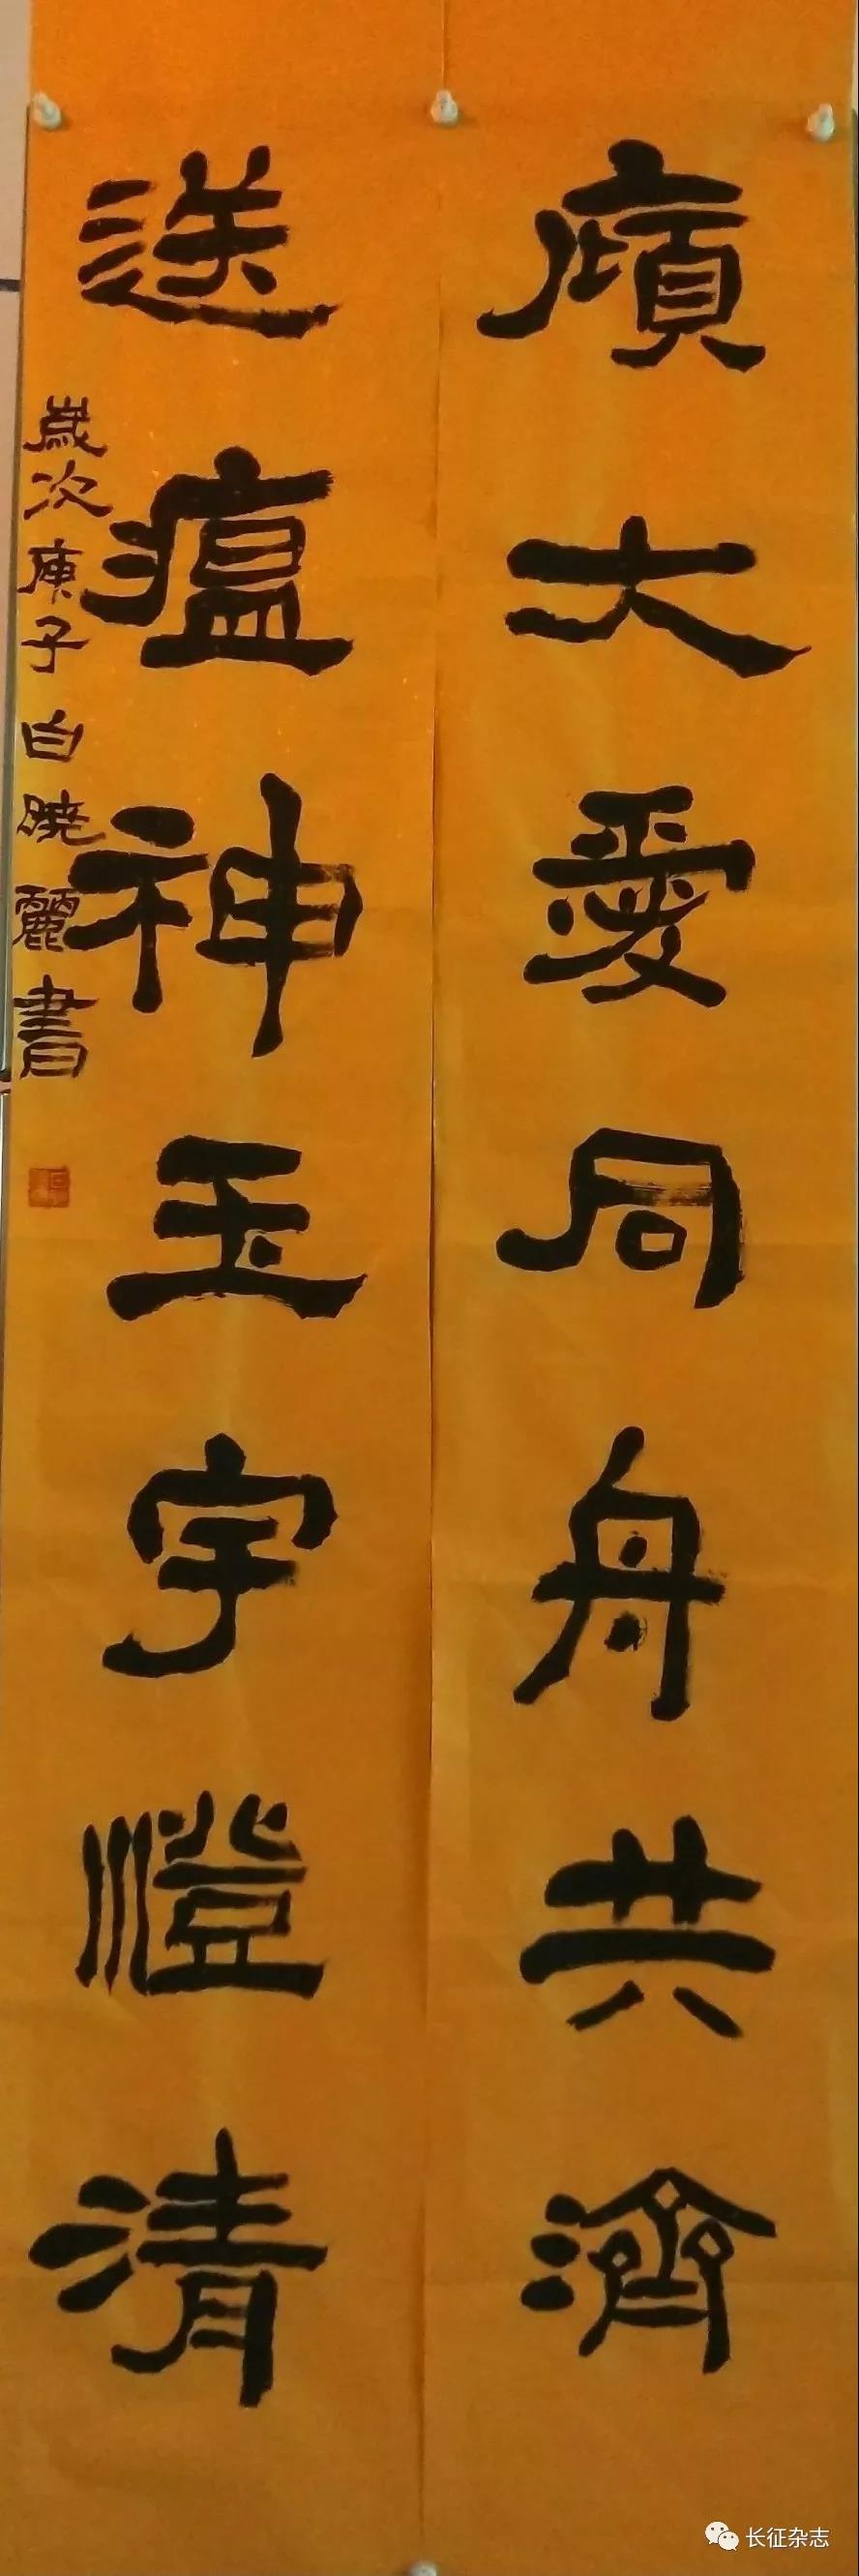 廎大愛同舟共濟
送瘟神玉宇澄清
歲次庚子白曉麗書
长征杂志